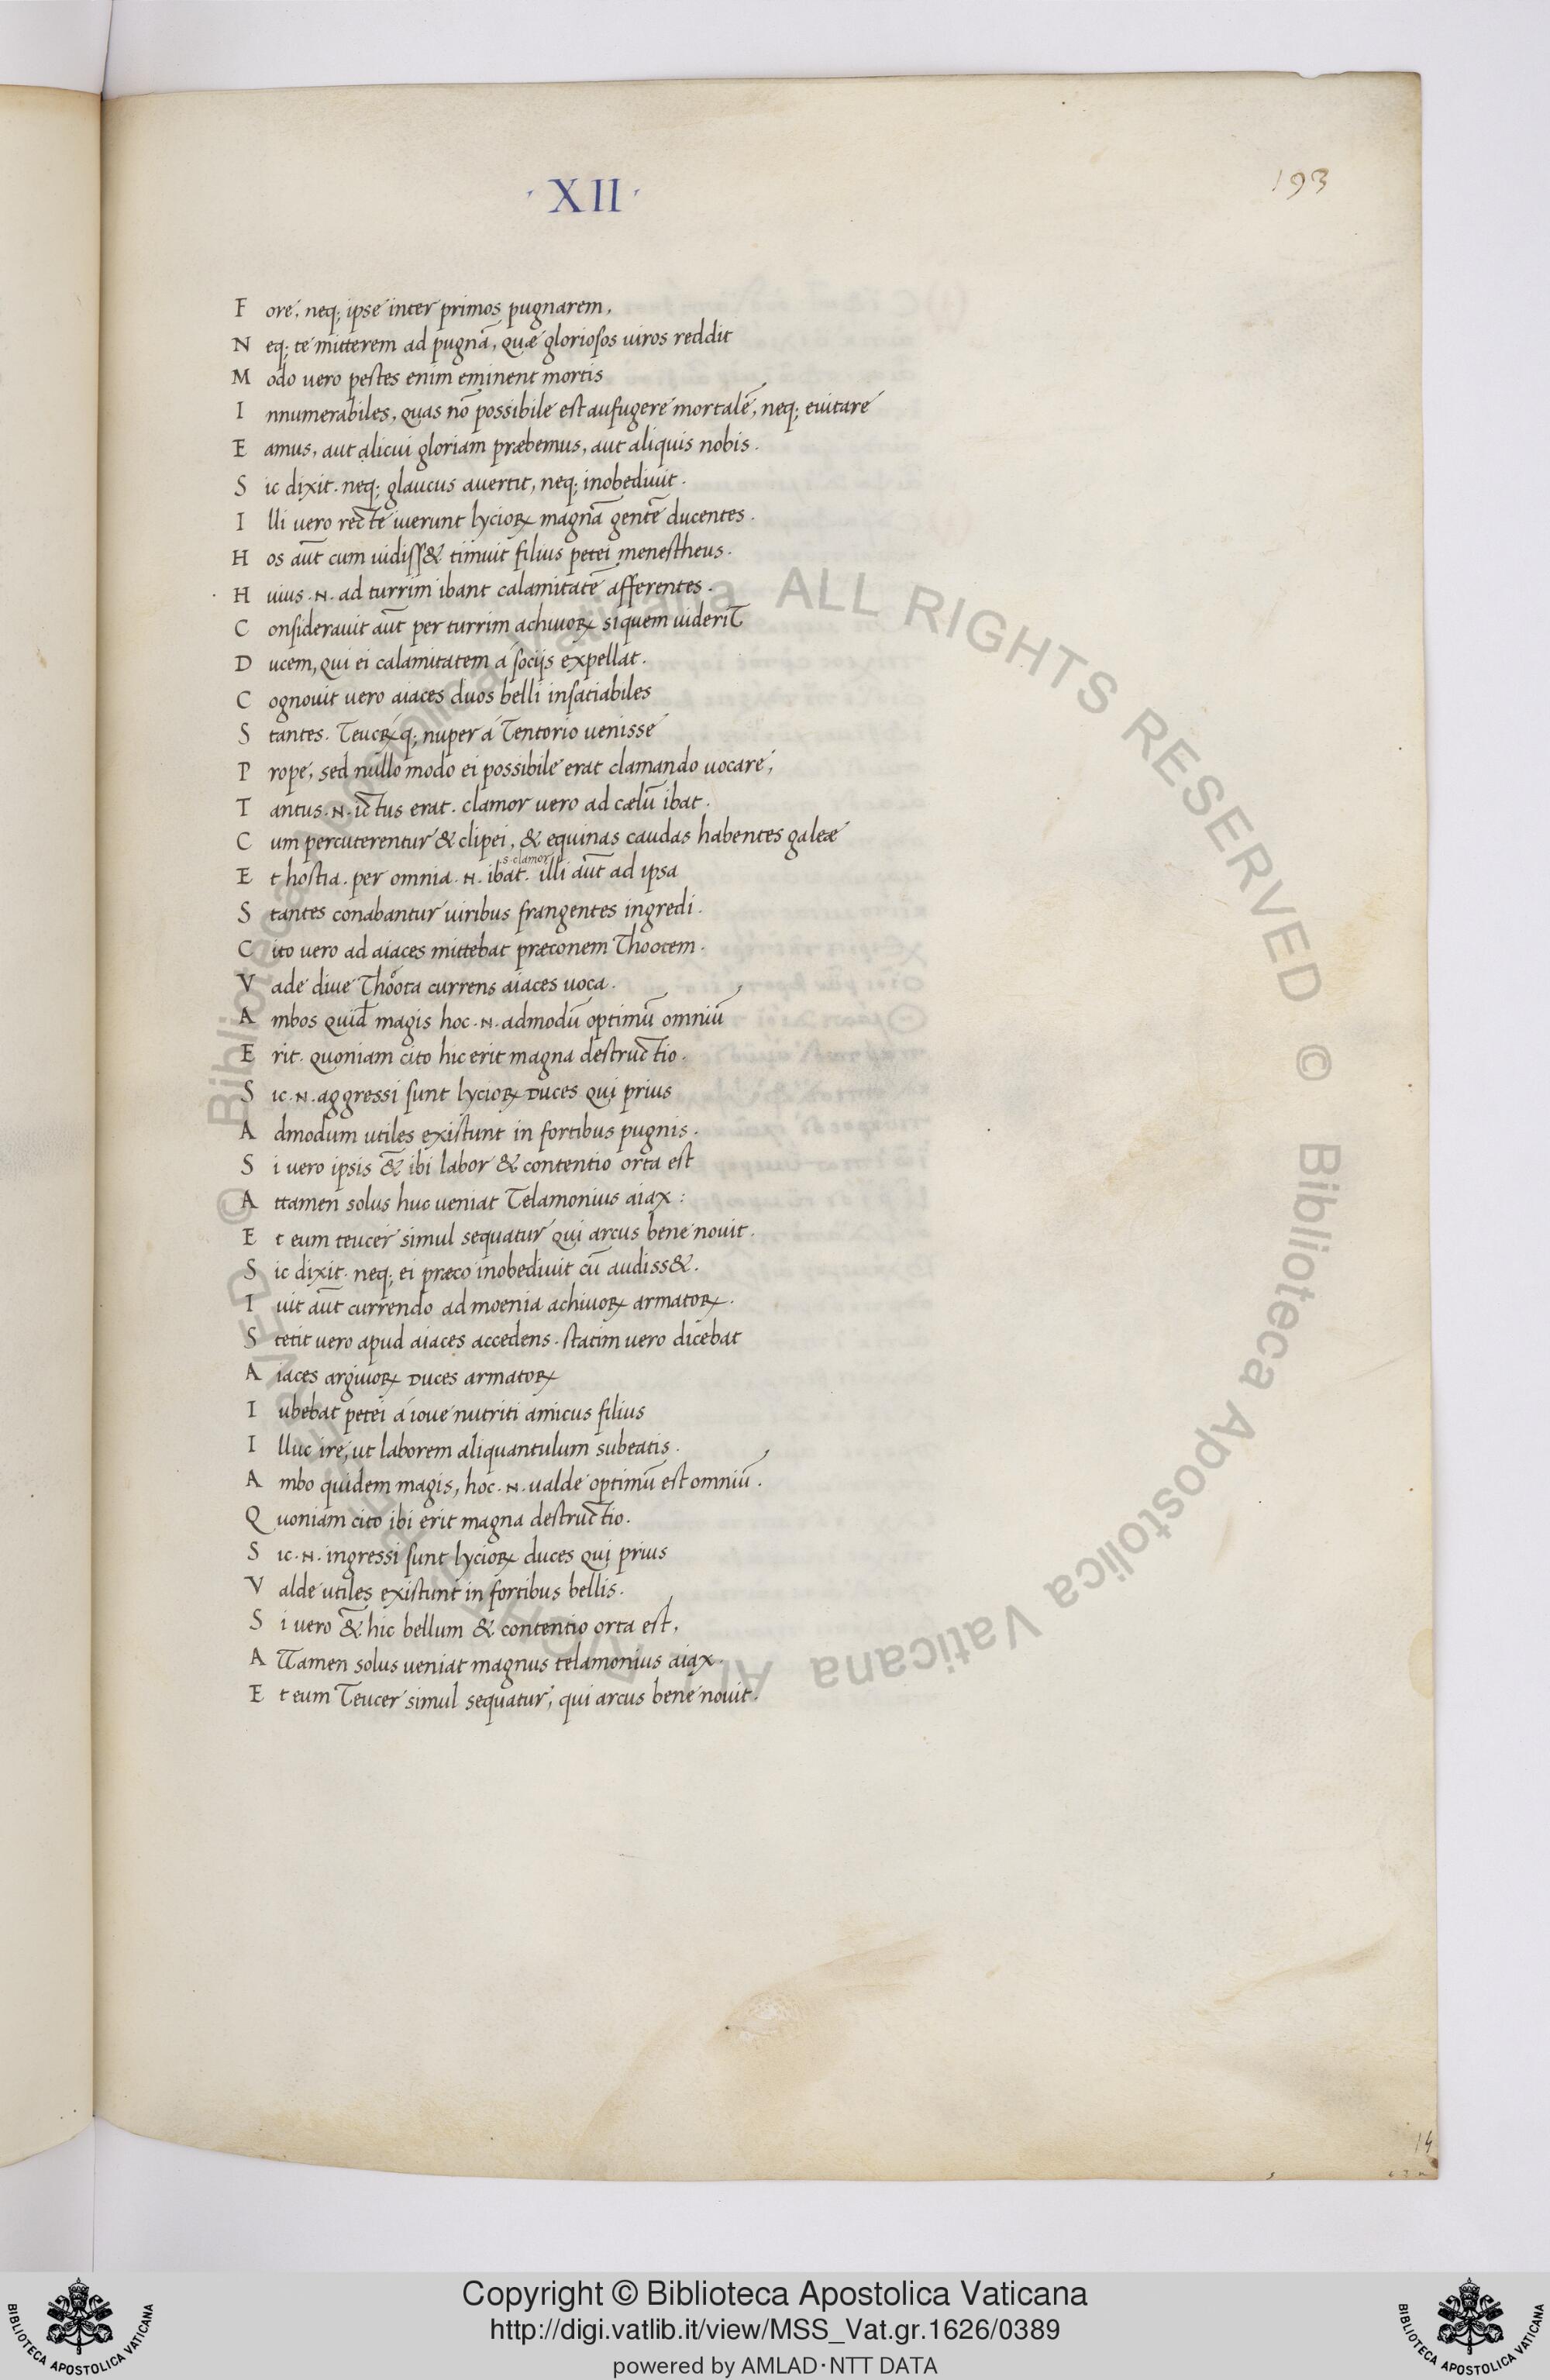 · XII ·
193
F ore, neq; ipse inter primos pugnarem,
N eq; te mitterem ad pugnā, quæ gloriosos uiros reddit
M odo uero pestes enim eminent mortis
I nnumerabiles, quas nō possibile est aufugere mortalē, neq; euitare
E amus, aut alicui gloriam præbemus, aut aliquis nobis.
S ic dixit. neq; glaucus auertit, neq; inobediuit.
I lli uero recte iuerunt lycioꝝ magnā gentē ducentes.
H os aūt cum uidiss& timuit filius petei menestheus.
H uius .N. ad turrim ibant calamitatē afferentes.
C onsiderauit aūt per turrim achiuoꝝ si quem uiderit
D ucem, qui ei calamitatem a socijs expellat.
C ognouit uero aiaces duos belli insatiabiles
S tantes. Teucꝝq; nuper á Tentorio uenisse
P rope, sed nullo modo ei possibile erat clamando uocare,
T antus .N. ictus erat. clamor uero ad cælū ibat.
C um percuterentur & clipei, & equinas caudas habentes galeæ
s. clamor
E t hostia. per omnia .N. ibat. illi aūt ad ipsa
S tantes conabantur uiribus frangentes ingredi.
C ito uero ad aiaces mittebat præconem Thootem.
V ade diue Thoota currens aiaces uoca.
A mbos quid̄ magis hoc .N. admodū optimū omniū
E rit. quoniam cito hic erit magna destructio.
S ic .N. aggressi sunt lycioꝝ duces qui prius
A dmodum utiles existunt in fortibus pugnis.
S i uero ipsis & ibi labor & contentio orta est
A ttamen solus huc ueniat Telamonius aiax:
E t eum teucer simul sequatur qui arcus bene nouit.
S ic dixit. neq; ei præco inobediuit cū audiss&.
I uit aūt currendo ad moenia achiuoꝝ armatoꝝ.
S tetit uero apud aiaces accedens. statim uero dicebat
A iaces argiuoꝝ duces armatoꝝ
I ubebat petei á ioue nutriti amicus filius
I lluc ire, ut laborem aliquantulum subeatis.
A mbo quidem magis, hoc .N. ualde optimū est omniū.
Q uoniam cito ibi erit magna destructio.
S ic .N. ingressi sunt lycioꝝ duces qui prius
V alde utiles existunt in fortibus bellis.
S i uero & hic bellum & contentio orta est,
A ttamen solus ueniat magnus telamonius aiax.
E t eum Teucer simul sequatur, qui arcus bene nouit.
14
© Biblioteca Apostolica Vaticana ALL RIGHTS RESERVED © Biblioteca Apostolica Vaticana
Copyright © Biblioteca Apostolica Vaticana
http://digi.vatlib.it/view/MSS_Vat.gr.1626/0389
powered by AMLAD·NTT DATA
BIBLIOTECA APOSTOLICA VATICANA
BIBLIOTECA APOSTOLICA VATICANA